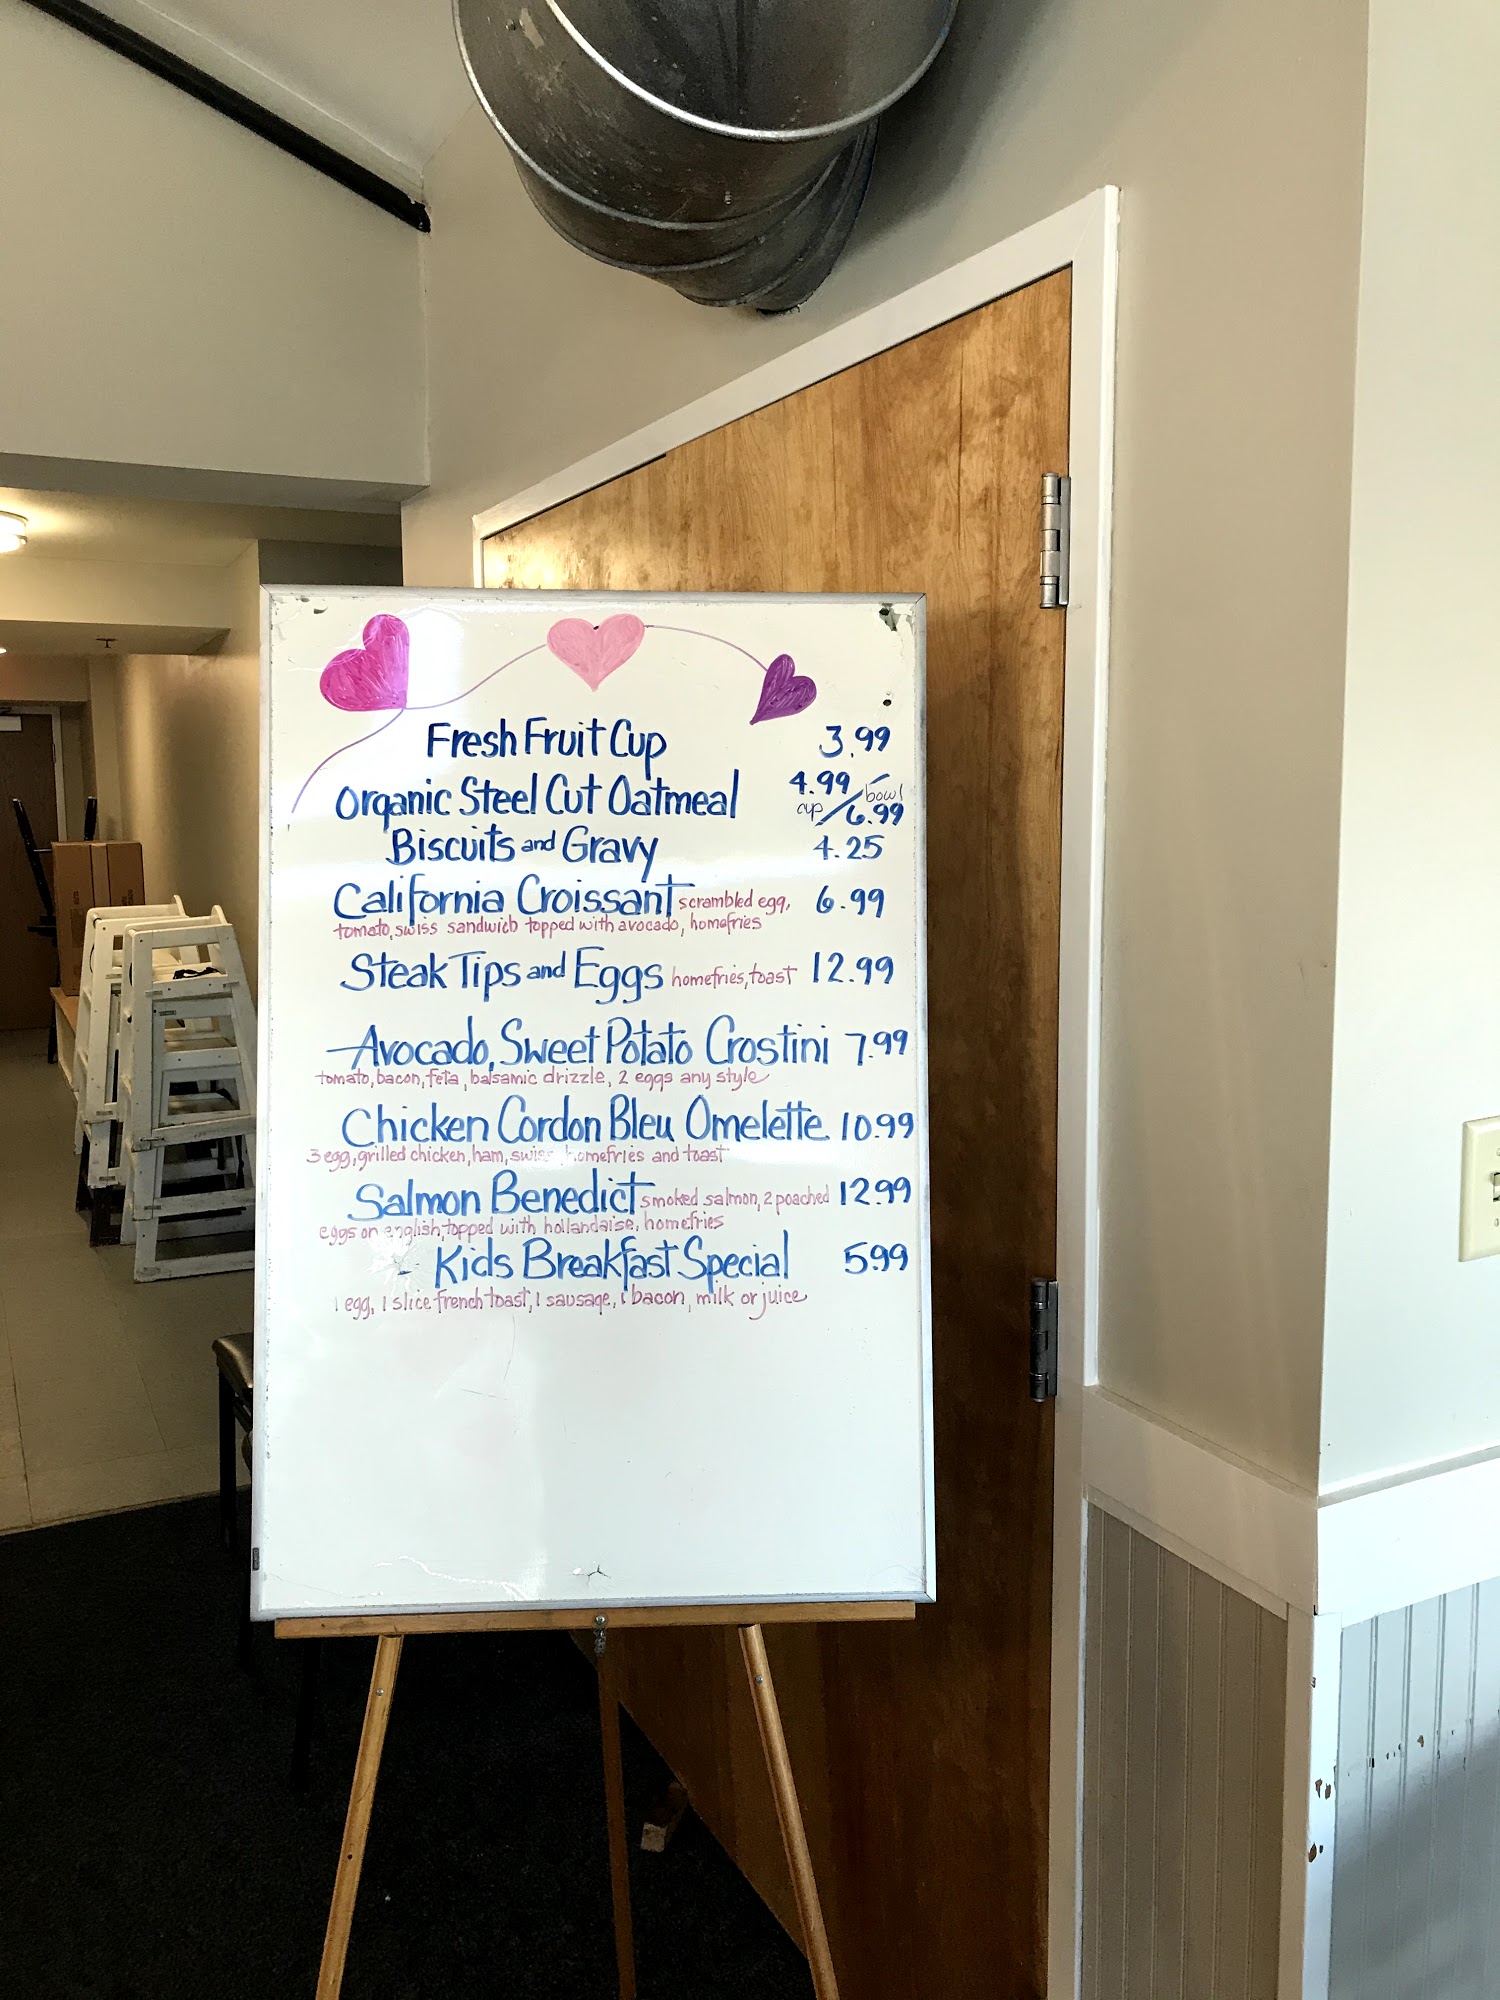 Fresh Fruit Cup 3.99
Organic Steel Cut Oatmeal 4.99 cup / bowl 6.99
Biscuits and Gravy 4.25
California Croissant scrambled egg, 6.99
tomato, swiss sandwich topped with avocado, homefries
Steak Tips and Eggs homefries, toast 12.99
Avocado, Sweet Potato Crostini 7.99
tomato, bacon, feta, balsamic drizzle, 2 eggs any style
Chicken Cordon Bleu Omelette 10.99
3 egg, grilled chicken, ham, swiss, homefries and toast
Salmon Benedict smoked salmon, 2 poached 12.99
eggs on english, topped with hollandaise, homefries
- Kids Breakfast Special 5.99
1 egg, 1 slice french toast, 1 sausage, 1 bacon, milk or juice